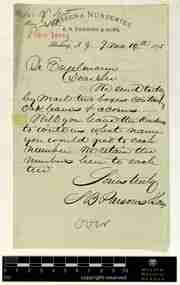 NURSERIES
S. B. PARSONS & SONS,
Flushing, N. Y.
Dr. Engelmann
Dear Sir
We send to day
by Mail two boxes
Oak leaves & acorns.
Will you have the kindness
to write us what name
you would give to each
number. We retain the
numbers here to each
tree.
Yours truly
S B Parsons & Sons
over